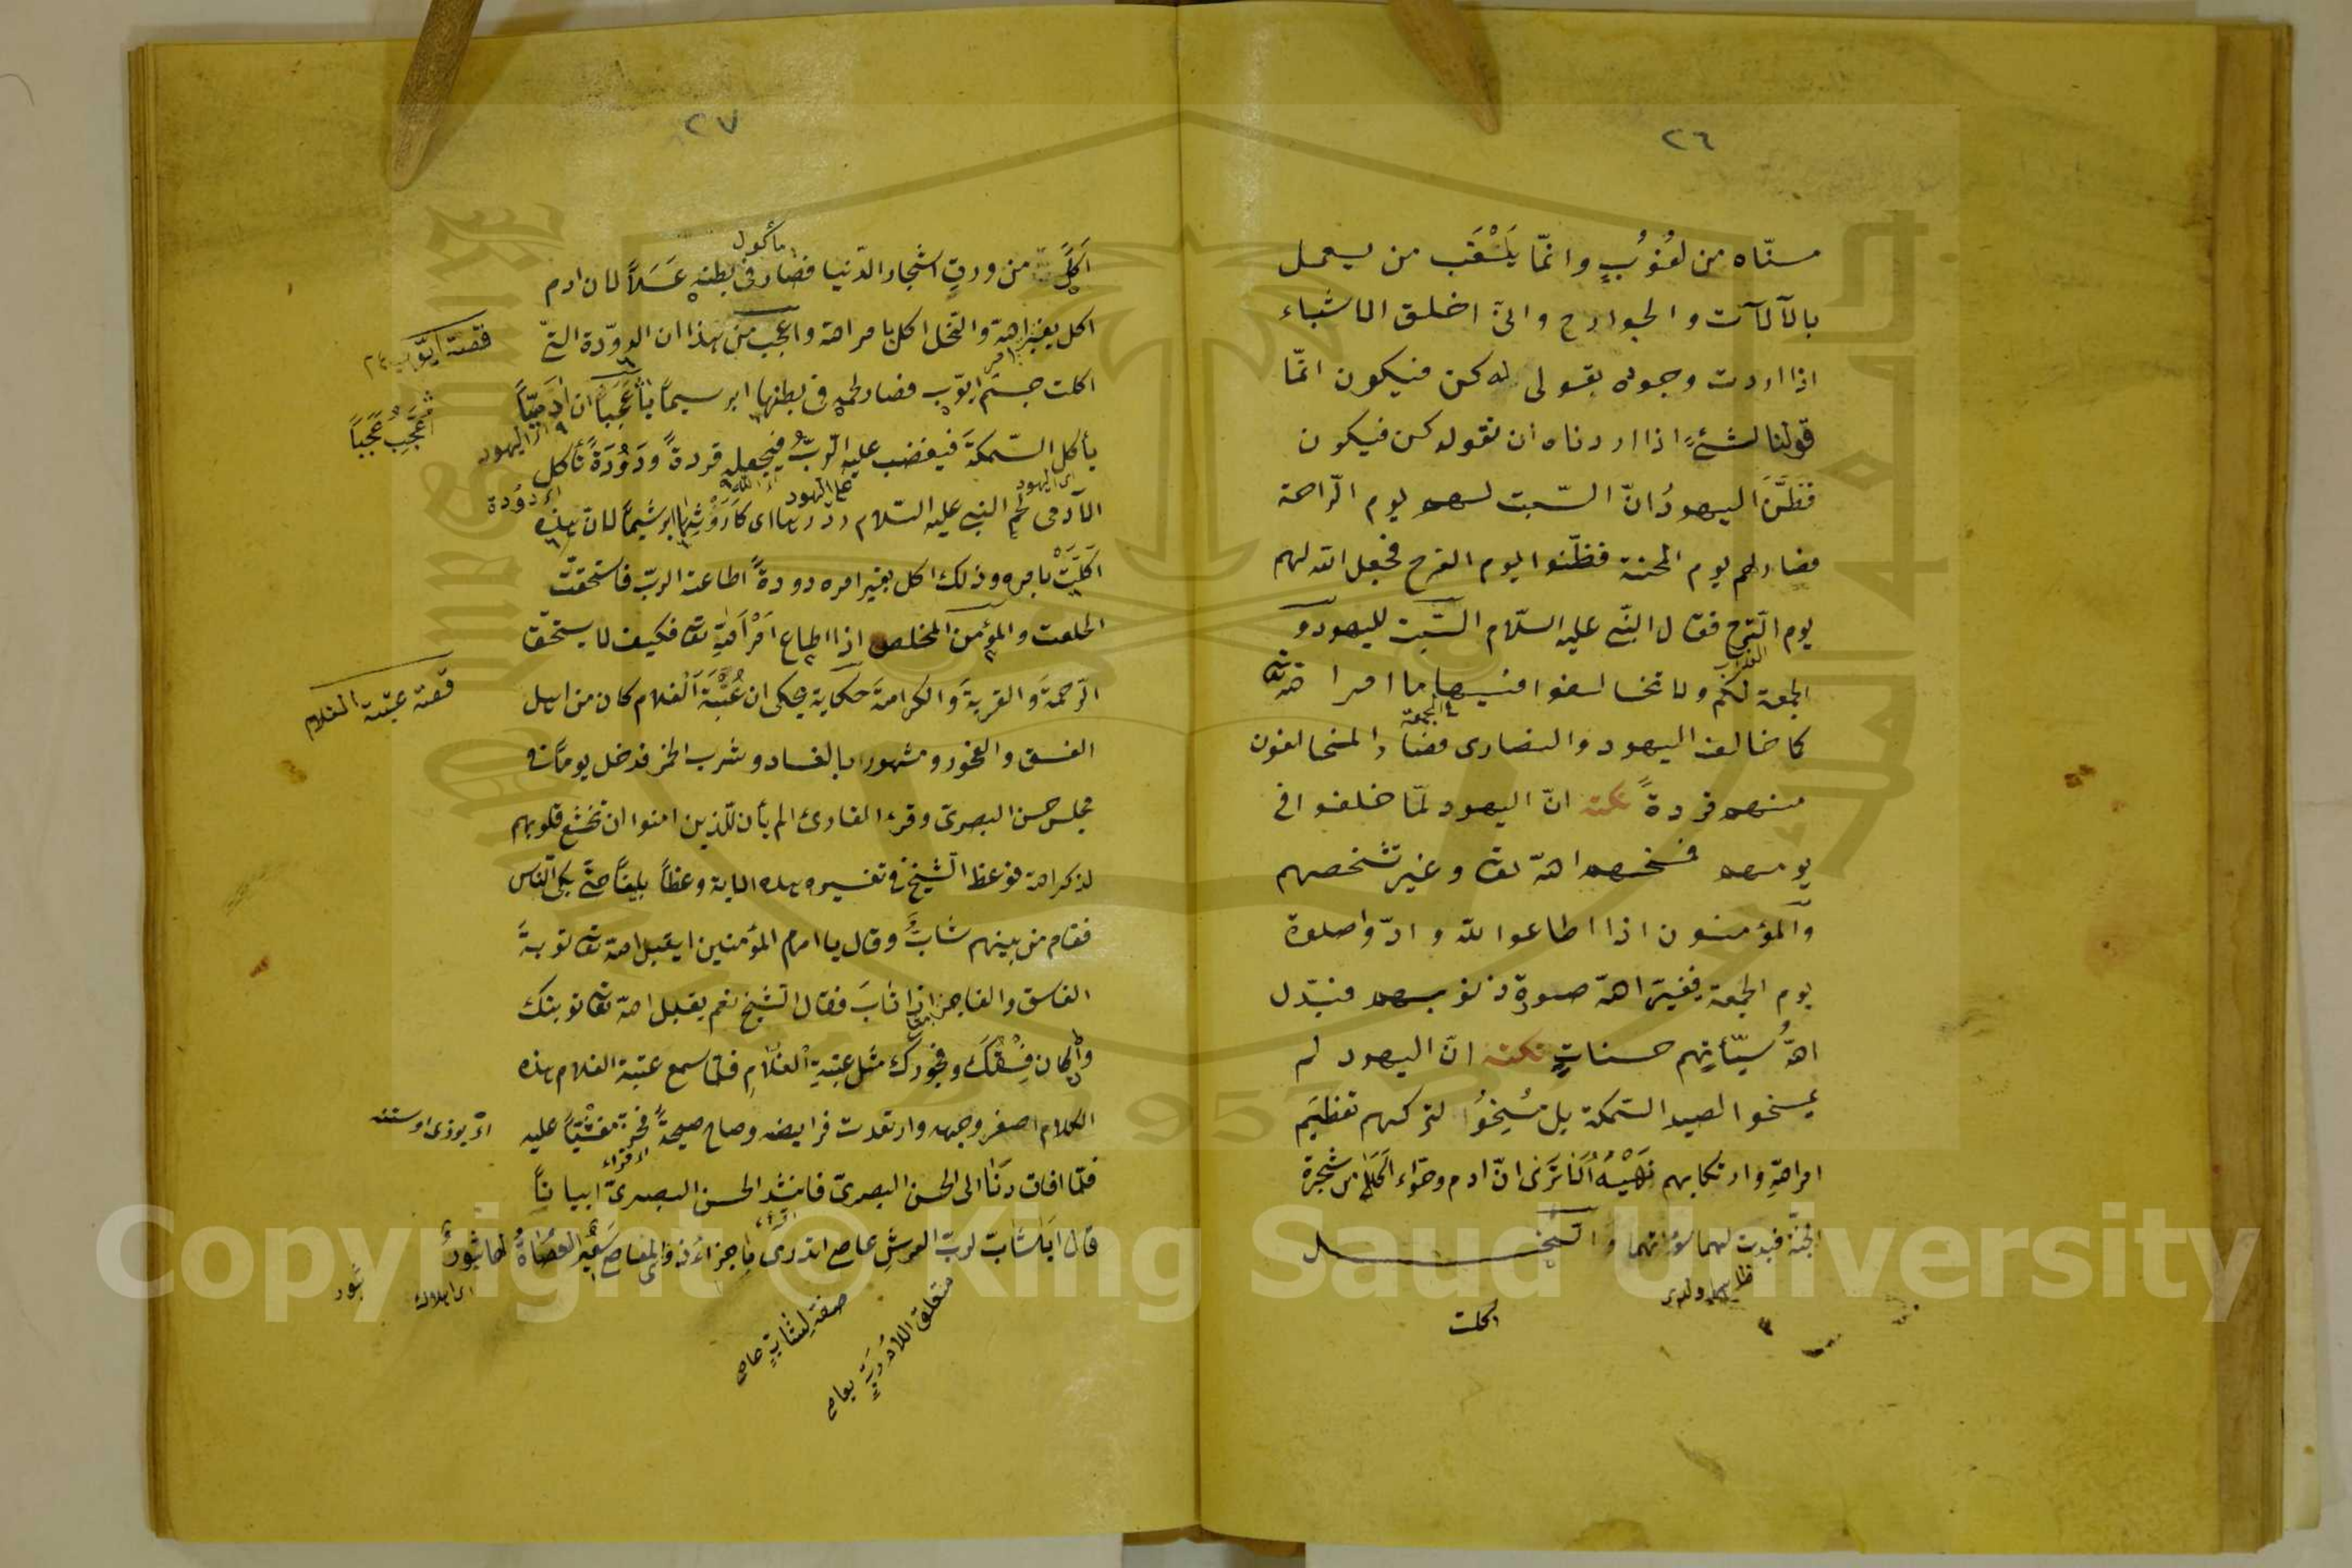 ٢٦
مسّناه من لغوب وانّما يَلْغَب من يعمل
بالآلات والجوارح وانى اخلق الاشياء
اذا اردت وجوده بقولى له كن فيكون انّما
قولنا لشئ اذا اردناه ان نقوله كن فيكون
فظنّ اليهودُ انّ السّبت لهم يوم الرّاحة
فصار لهم يوم المحنة فظنّوا يوم الفرح فجعل الله لهم
يوم التّرح فقال النّبى عليه السّلام السّبت لليهود و
الجمعة لكم ولا تخالفوا فيها ما امر الله تعالى
كما خالفت اليهود والنصارى فصار المخالفون
فى الجمعة
منهم قردةً نكته انّ اليهود لمّا خلفوا فى
يومهم فمسخهم الله تعالى وغير تشخصهم
والمؤمنون اذا اطاعوا لله وادّوا صلوة
يوم الجمعة فيغير الله صورة ذنوبهم فيبدّل
اللهُ سيّأتهم حسناتٍ نكته انّ اليهود لم
يمسخوا لصيد السّمكة بل مُسِخُوا لتركهم تعظيم
امر اللهِ وارتكابهم نَهْيَهُ ألا ترى انّ ادم وحوّاء اكلا من شجرة
الجنّة فبدت لهما سوأتهما والنّحل
اكلت
٢٧
اكلت من ورق اشجار الدّنيا فصار فى بطنه عَسَلاً لان ادم
مأكول
اكل بغير امر الله والنّحل اكل بامر الله واعجب من هذا ان الدّودة الّتى
قصّة ايّوب
اكلت جسم ايّوب فصار لحمه فى بطنها ابرسيماً يا عَجَباً ان آدميّاً
عجباً
يأكل السّمكة فيغضب عليه الرّبُّ فيجعله قردةً ودُودَةً تأكل
اى اليهود
الآدمى لحم النبى عليه السّلام
ابرشيماً لان هذه
اى دودة
اكَلَتْ بامره وذلك اكل بغير امره دودةً اطاعت الرب فاستحقّت
الخلعت والمؤمن المخلص اذا اطاع امْرَ اللهِ تعالى فكيف لا يستحقّ
الرّحمةَ والقربةَ والكرامةَ حكاية يحكى ان عُتْبَةَ الغلام كان من اهل
قصّة عتبة الغلام
الفسق والفجور ومشهورا بالفساد وشرب الخمر فدخل يوماً فى
مجلس حسن البصرىّ وقرء القارئ الم يأن للّذين امنوا ان تخشع قلوبهم
لذكر الله فوعظ الشّيخ فى تفسيره هذه الاية وعظاً بليغاً حتّى بكى النّاس
فقام من بينهم شابٌّ وقال يا امام المؤمنين ايقبل الله تعالى توبةً
الفاسق والفاجر اذا تابَ فقال الشّيخ نعم يقبل الله تعالى توبتك
وان كان فِسْقُكَ وفجورك مثل عتبةِ الغلامِ فلمّا سمع عتبة الغلام هذه
الكلام اصفر وجهه وارتعدت فرايضه وصاح صيحةً فخرّ مغشيّاً عليه
فلمّا افاق دنا الى الحسن البصرىّ فانشد الحسن البصرىّ ابياتاً
قال ايا شابّ لربّ العرشِ عاصى اتدرى ما جزاءُ ذوى المعاصى سَعِيرٌ للعُصاةِ لها ثبورٌ
اى هلاك
صفة لشابٍّ عاصى